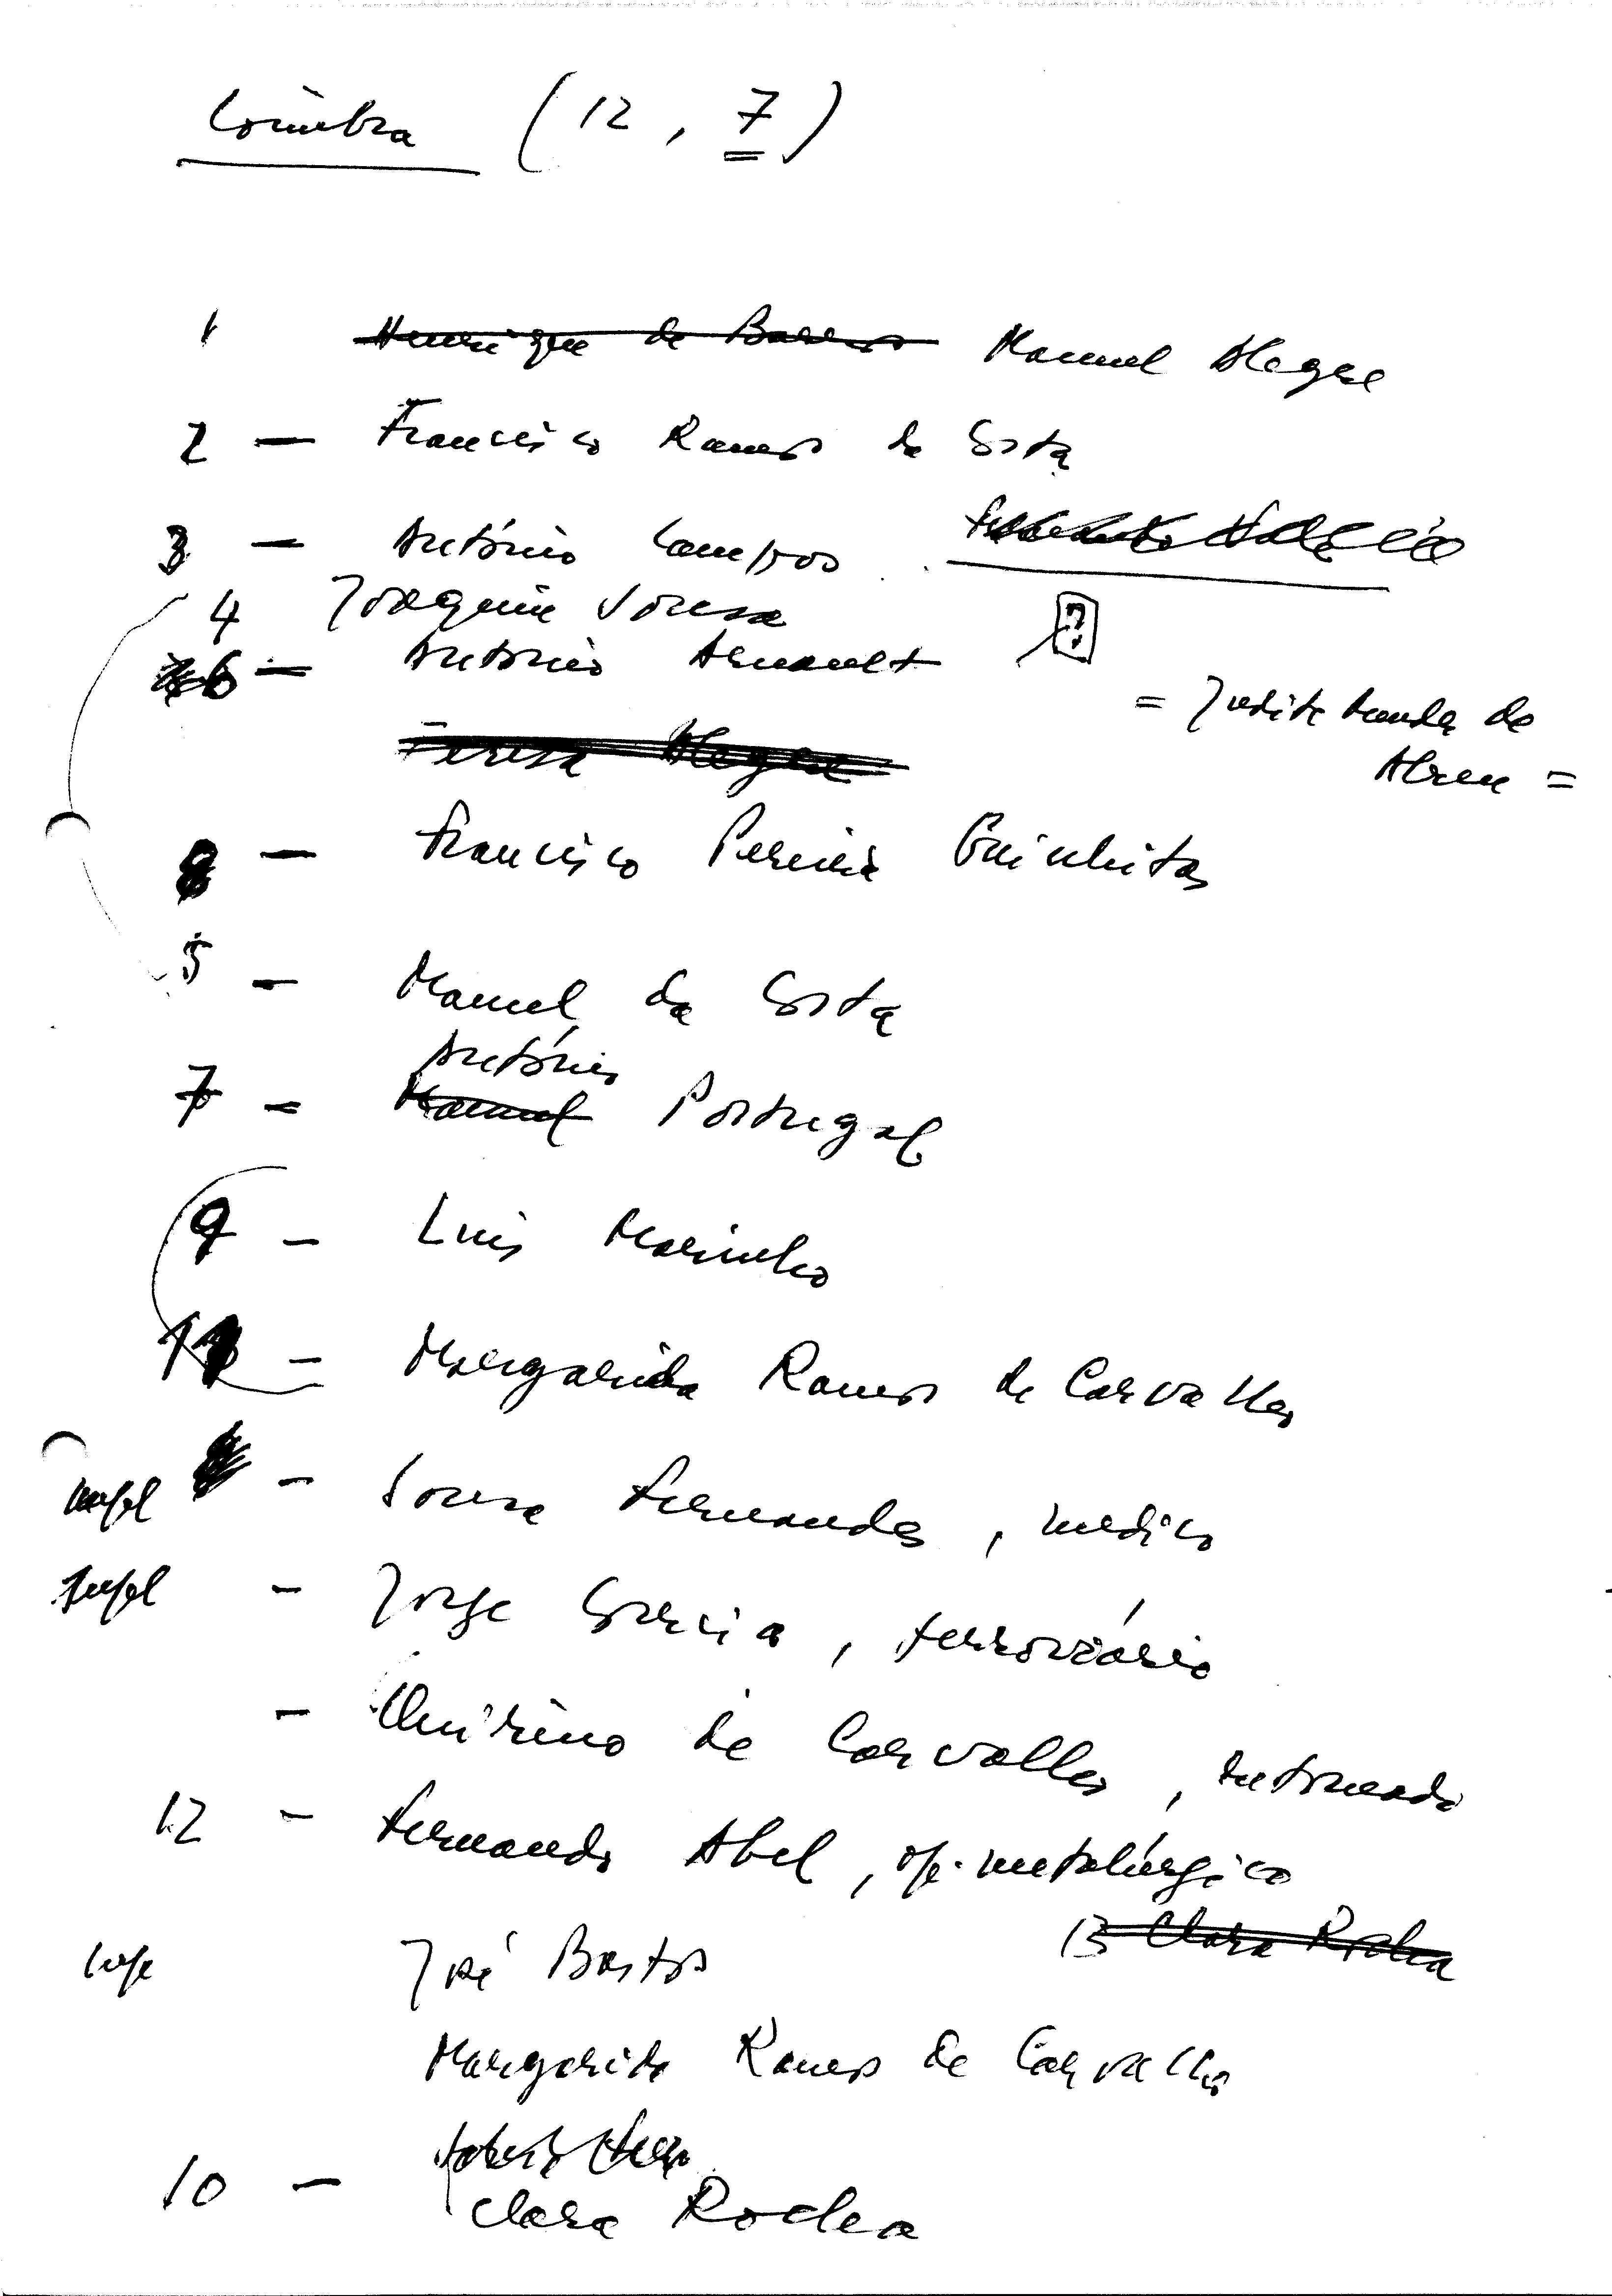 Coimbra (12, 7)
1 Henrique de Barros Manuel Alegre
2 — Francisco Ramos da Costa
3 — António Campos
4 Joaquim Sousa
6 — António Arnault
= Judite Mendes de
Abreu =
Teresa Alegre
8 — Francisco Pereira
5 — Manuel da Costa
António
7 — Manuel Portugal
9 — Luis Marinho
11 — Margarida Ramos de Carvalho
— Sousa Fernandes, médico
— Jorge Correia, ferroviário
— Quirino de Carvalho,
12 — Fernando Abel, op. metalúrgico
13 Clara Rocha
José Bastos
Margarida Ramos de Carvalho
10 — Clara Rocha